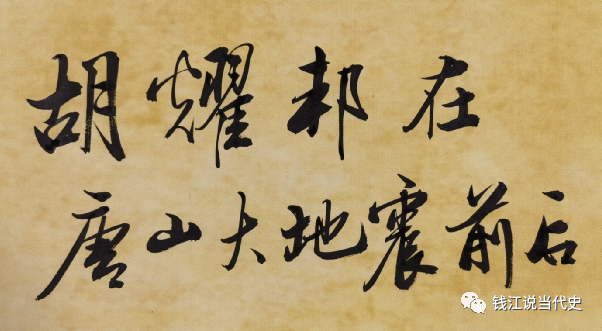 胡耀邦在
唐山大地震前后
钱江说当代史